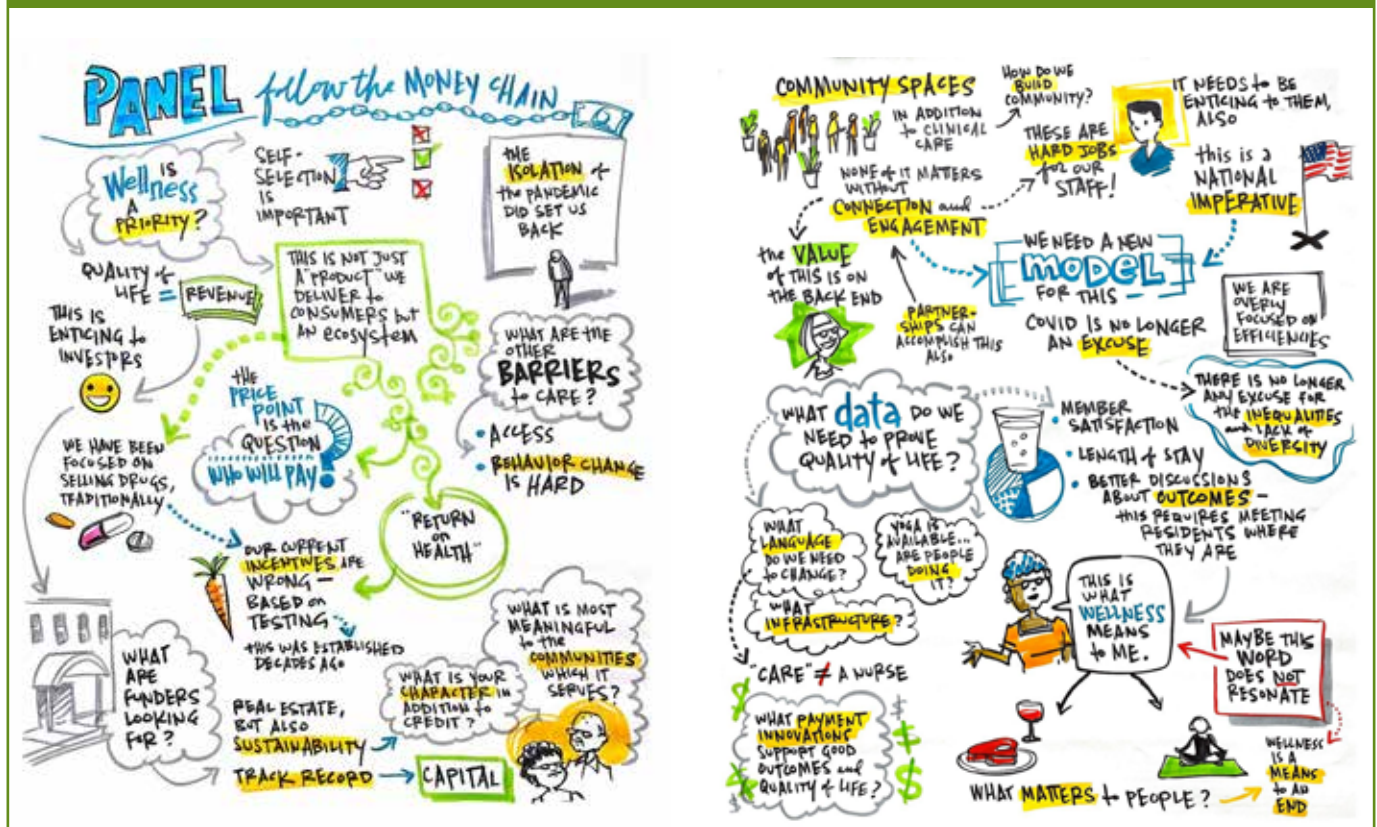 PANEL follow the MONEY CHAIN
IS
Wellness
A
PRIORITY?
SELF-
SELECTION
IS
IMPORTANT
THE
ISOLATION of
the PANDEMIC
DID SET US
BACK
QUALITY of
LIFE = REVENUE
THIS IS
ENTICING to
INVESTORS
THIS IS NOT JUST
A "PRODUCT" WE
DELIVER to
CONSUMERS but
AN ecosystem
WHAT ARE the
OTHER
BARRIERS
to CARE?
• ACCESS
• BEHAVIOR CHANGE
IS HARD
the
PRICE
POINT
is the
QUESTION
WHO WILL PAY?
WE HAVE BEEN
FOCUSED ON
SELLING DRUGS,
TRADITIONALLY
"RETURN
on
HEALTH"
OUR CURRENT
INCENTIVES ARE
WRONG –
BASED on
TESTING
THIS WAS ESTABLISHED
DECADES AGO
WHAT
ARE
FUNDERS
LOOKING
FOR?
REAL ESTATE,
BUT ALSO
SUSTAINABILITY
TRACK RECORD
CAPITAL
WHAT IS YOUR
CHARACTER IN
ADDITION to
CREDIT?
WHAT IS MOST
MEANINGFUL
to the
COMMUNITIES
WHICH IT
SERVES?
COMMUNITY SPACES
IN ADDITION
to CLINICAL
CARE
HOW DO WE
BUILD
COMMUNITY?
THESE ARE
HARD JOBS
for OUR
STAFF!
IT NEEDS to BE
ENTICING to THEM,
ALSO
this is a
NATIONAL
IMPERATIVE
NONE of IT MATTERS
WITHOUT
CONNECTION and
ENGAGEMENT
the VALUE
of THIS IS ON
the BACK END
PARTNER-
SHIPS CAN
ACCOMPLISH THIS
ALSO
WE NEED A NEW
MODEL
FOR THIS –
COVID IS NO LONGER
AN EXCUSE
WE ARE
OVERLY
FOCUSED ON
EFFICIENCIES
THERE IS NO LONGER
ANY EXCUSE FOR
the INEQUALITIES
and LACK of
DIVERSITY
WHAT data DO WE
NEED to PROVE
QUALITY of LIFE?
• MEMBER
SATISFACTION
• LENGTH of STAY
• BETTER DISCUSSIONS
ABOUT OUTCOMES –
this REQUIRES MEETING
RESIDENTS WHERE
THEY ARE
WHAT
LANGUAGE
DO WE NEED
to CHANGE?
YOGA IS
AVAILABLE...
ARE PEOPLE
DOING
IT?
WHAT
INFRASTRUCTURE?
"CARE" ≠ A NURSE
WHAT PAYMENT
INNOVATIONS
SUPPORT GOOD
OUTCOMES and
QUALITY of LIFE?
THIS IS
WHAT
WELLNESS
MEANS
to ME.
MAYBE THIS
WORD
DOES NOT
RESONATE
WHAT MATTERS to PEOPLE?
WELLNESS
IS A
MEANS
to AN
END